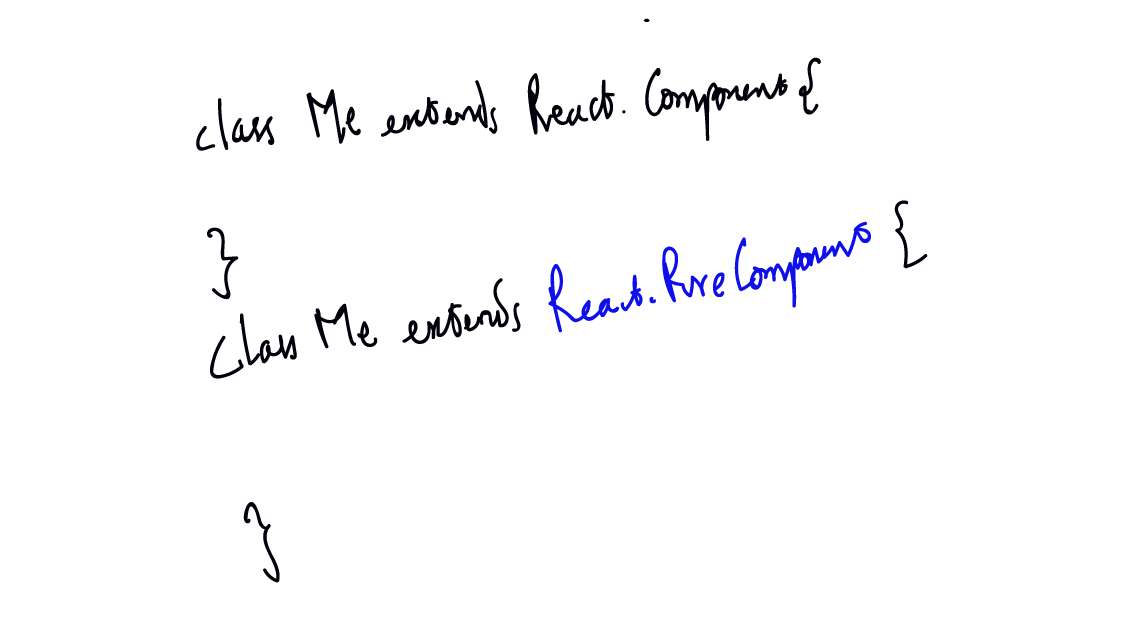 class Me extends React.Component{
}
class Me extends React.PureComponent {
}